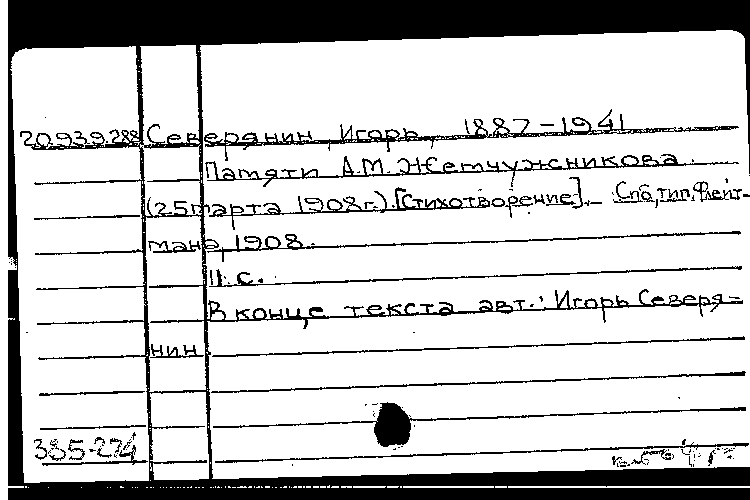 20.939.288 Северянин, Игорь, 1887-1941
Памяти А.М. Жемчужникова
(25 марта 1908 г.). [Стихотворение]. – Спб, тип. Флейт-
мана, 1908.
11 с.
В конце текста авт.: Игорь Северя-
нин
385-274